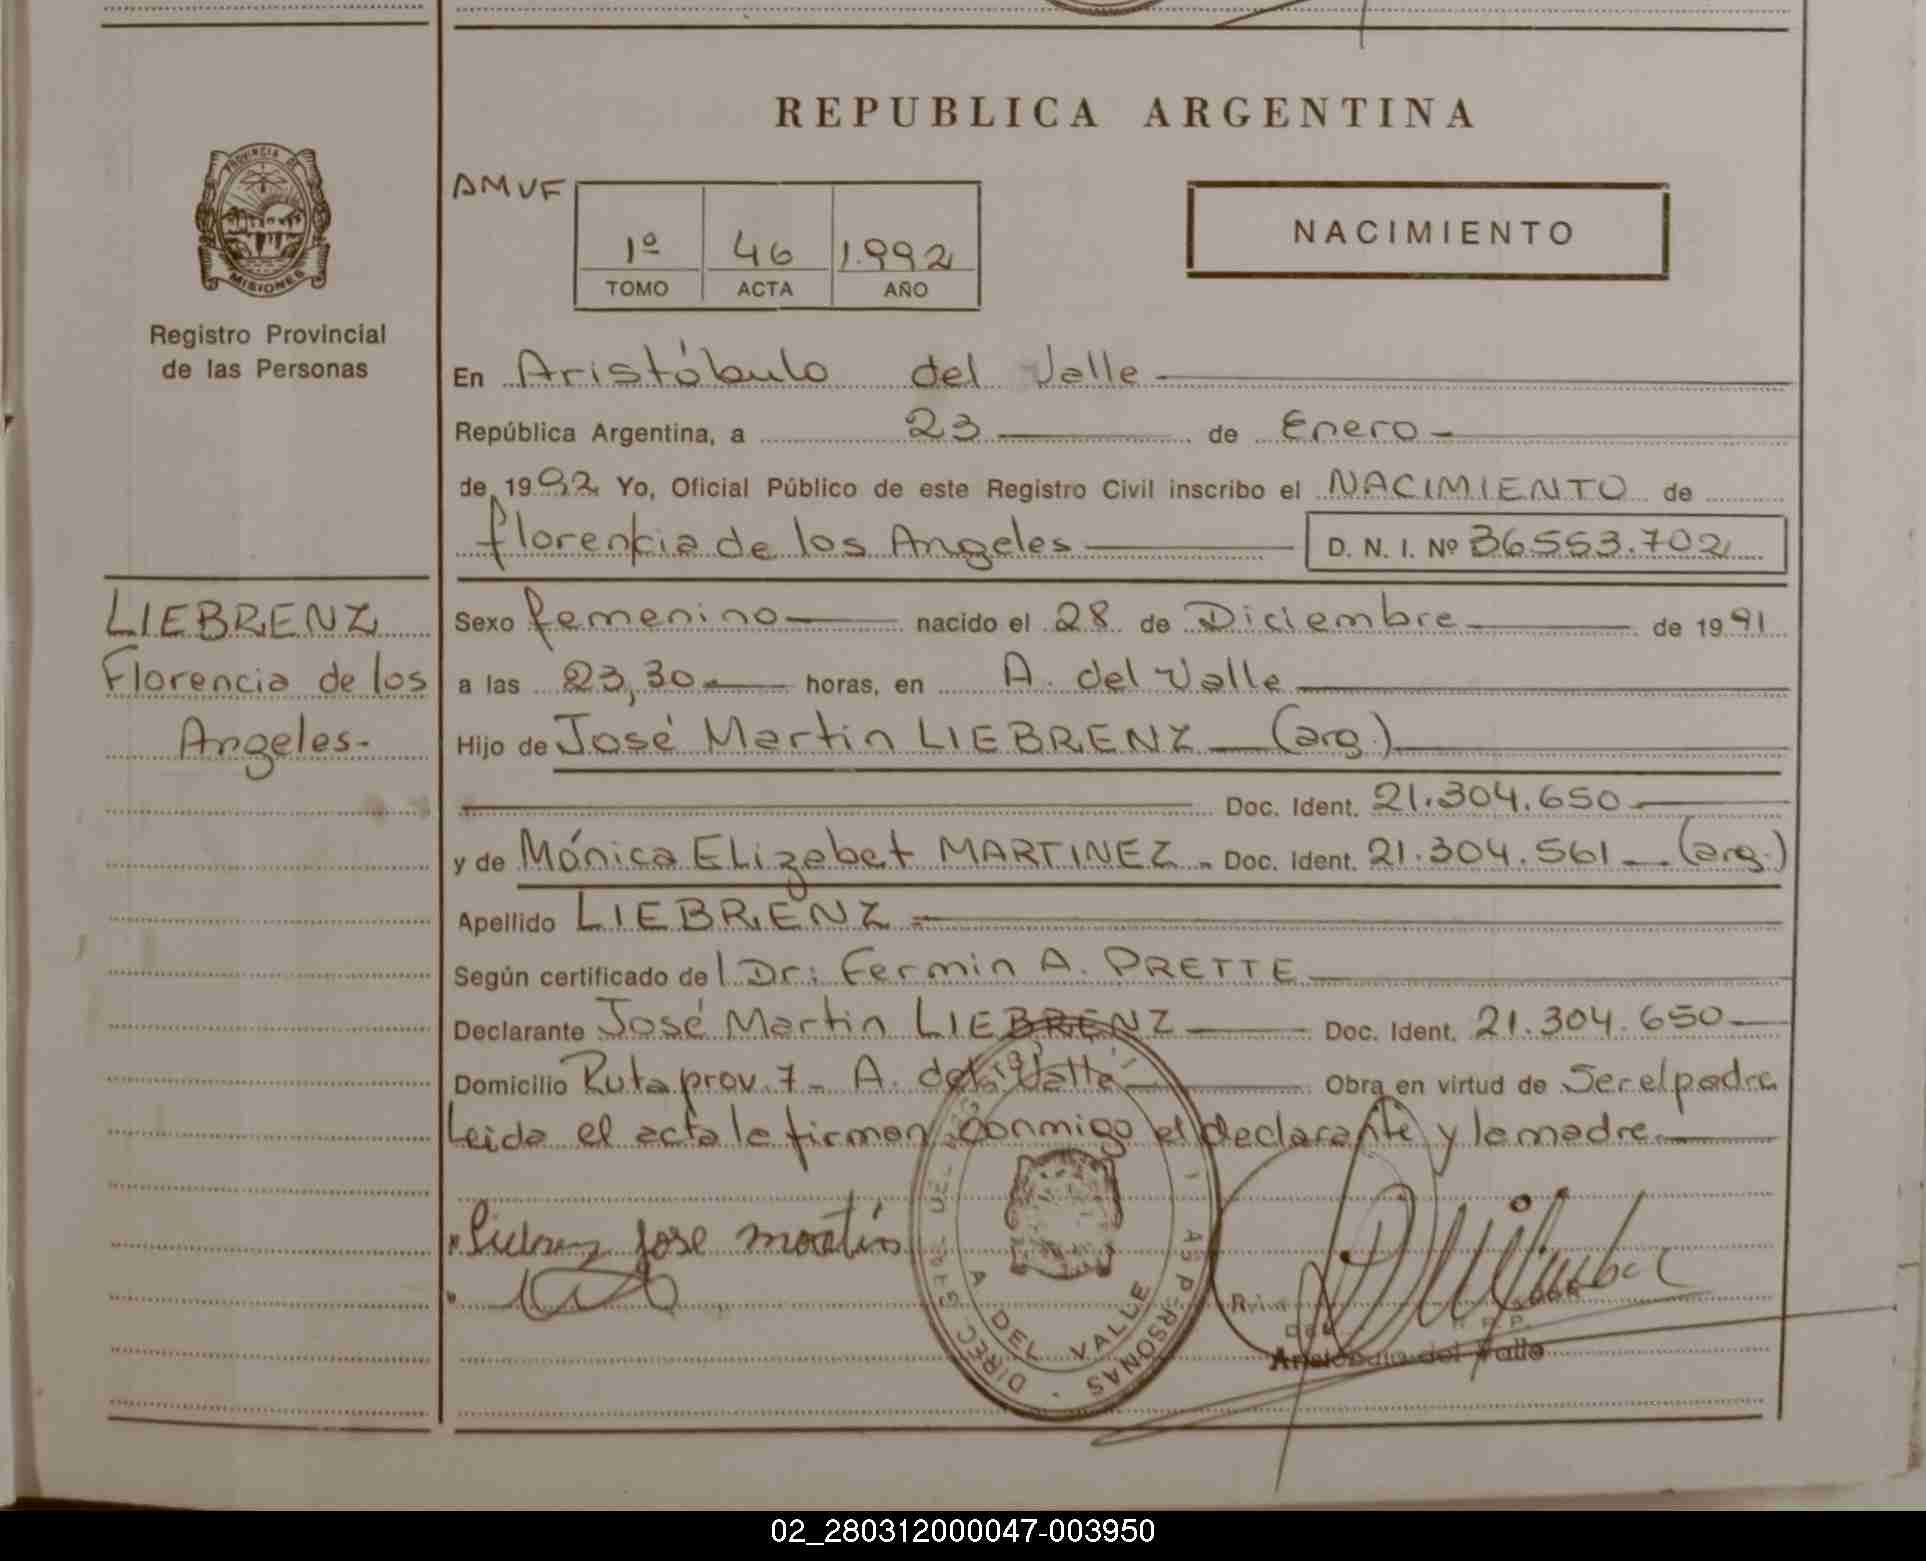 REPUBLICA ARGENTINA
PROVINCIA DE
MISIONES
Registro Provincial
de las Personas
AMVF
1º 46 1.992
TOMO ACTA AÑO
NACIMIENTO
En Aristóbulo del Valle
República Argentina, a 23 de Enero
de 1992 Yo, Oficial Público de este Registro Civil inscribo el NACIMIENTO de
Florencia de los Angeles D. N. I. Nº 36553.702
LIEBRENZ
Florencia de los
Angeles-
Sexo femenino nacido el 28 de Diciembre de 1991
a las 23,30 horas, en A. del Valle
Hijo de José Martin LIEBRENZ (arg.)
Doc. Ident. 21.304.650
y de Mónica ELizabet MARTINEZ - Doc. Ident. 21.304.561 (arg.)
Apellido LIEBRENZ
Según certificado del Dr: Fermin A. PRETTE
Declarante José Martin LIEBRENZ Doc. Ident. 21.304.650
Domicilio Ruta prov. 7 - A. del Valle Obra en virtud de Ser el padre
Leida el acta la firman conmigo el declarante y la madre
jose martin
A DEL VALLE
PERSONAS
DIREC
Aristobulo del Valle
02_280312000047-003950